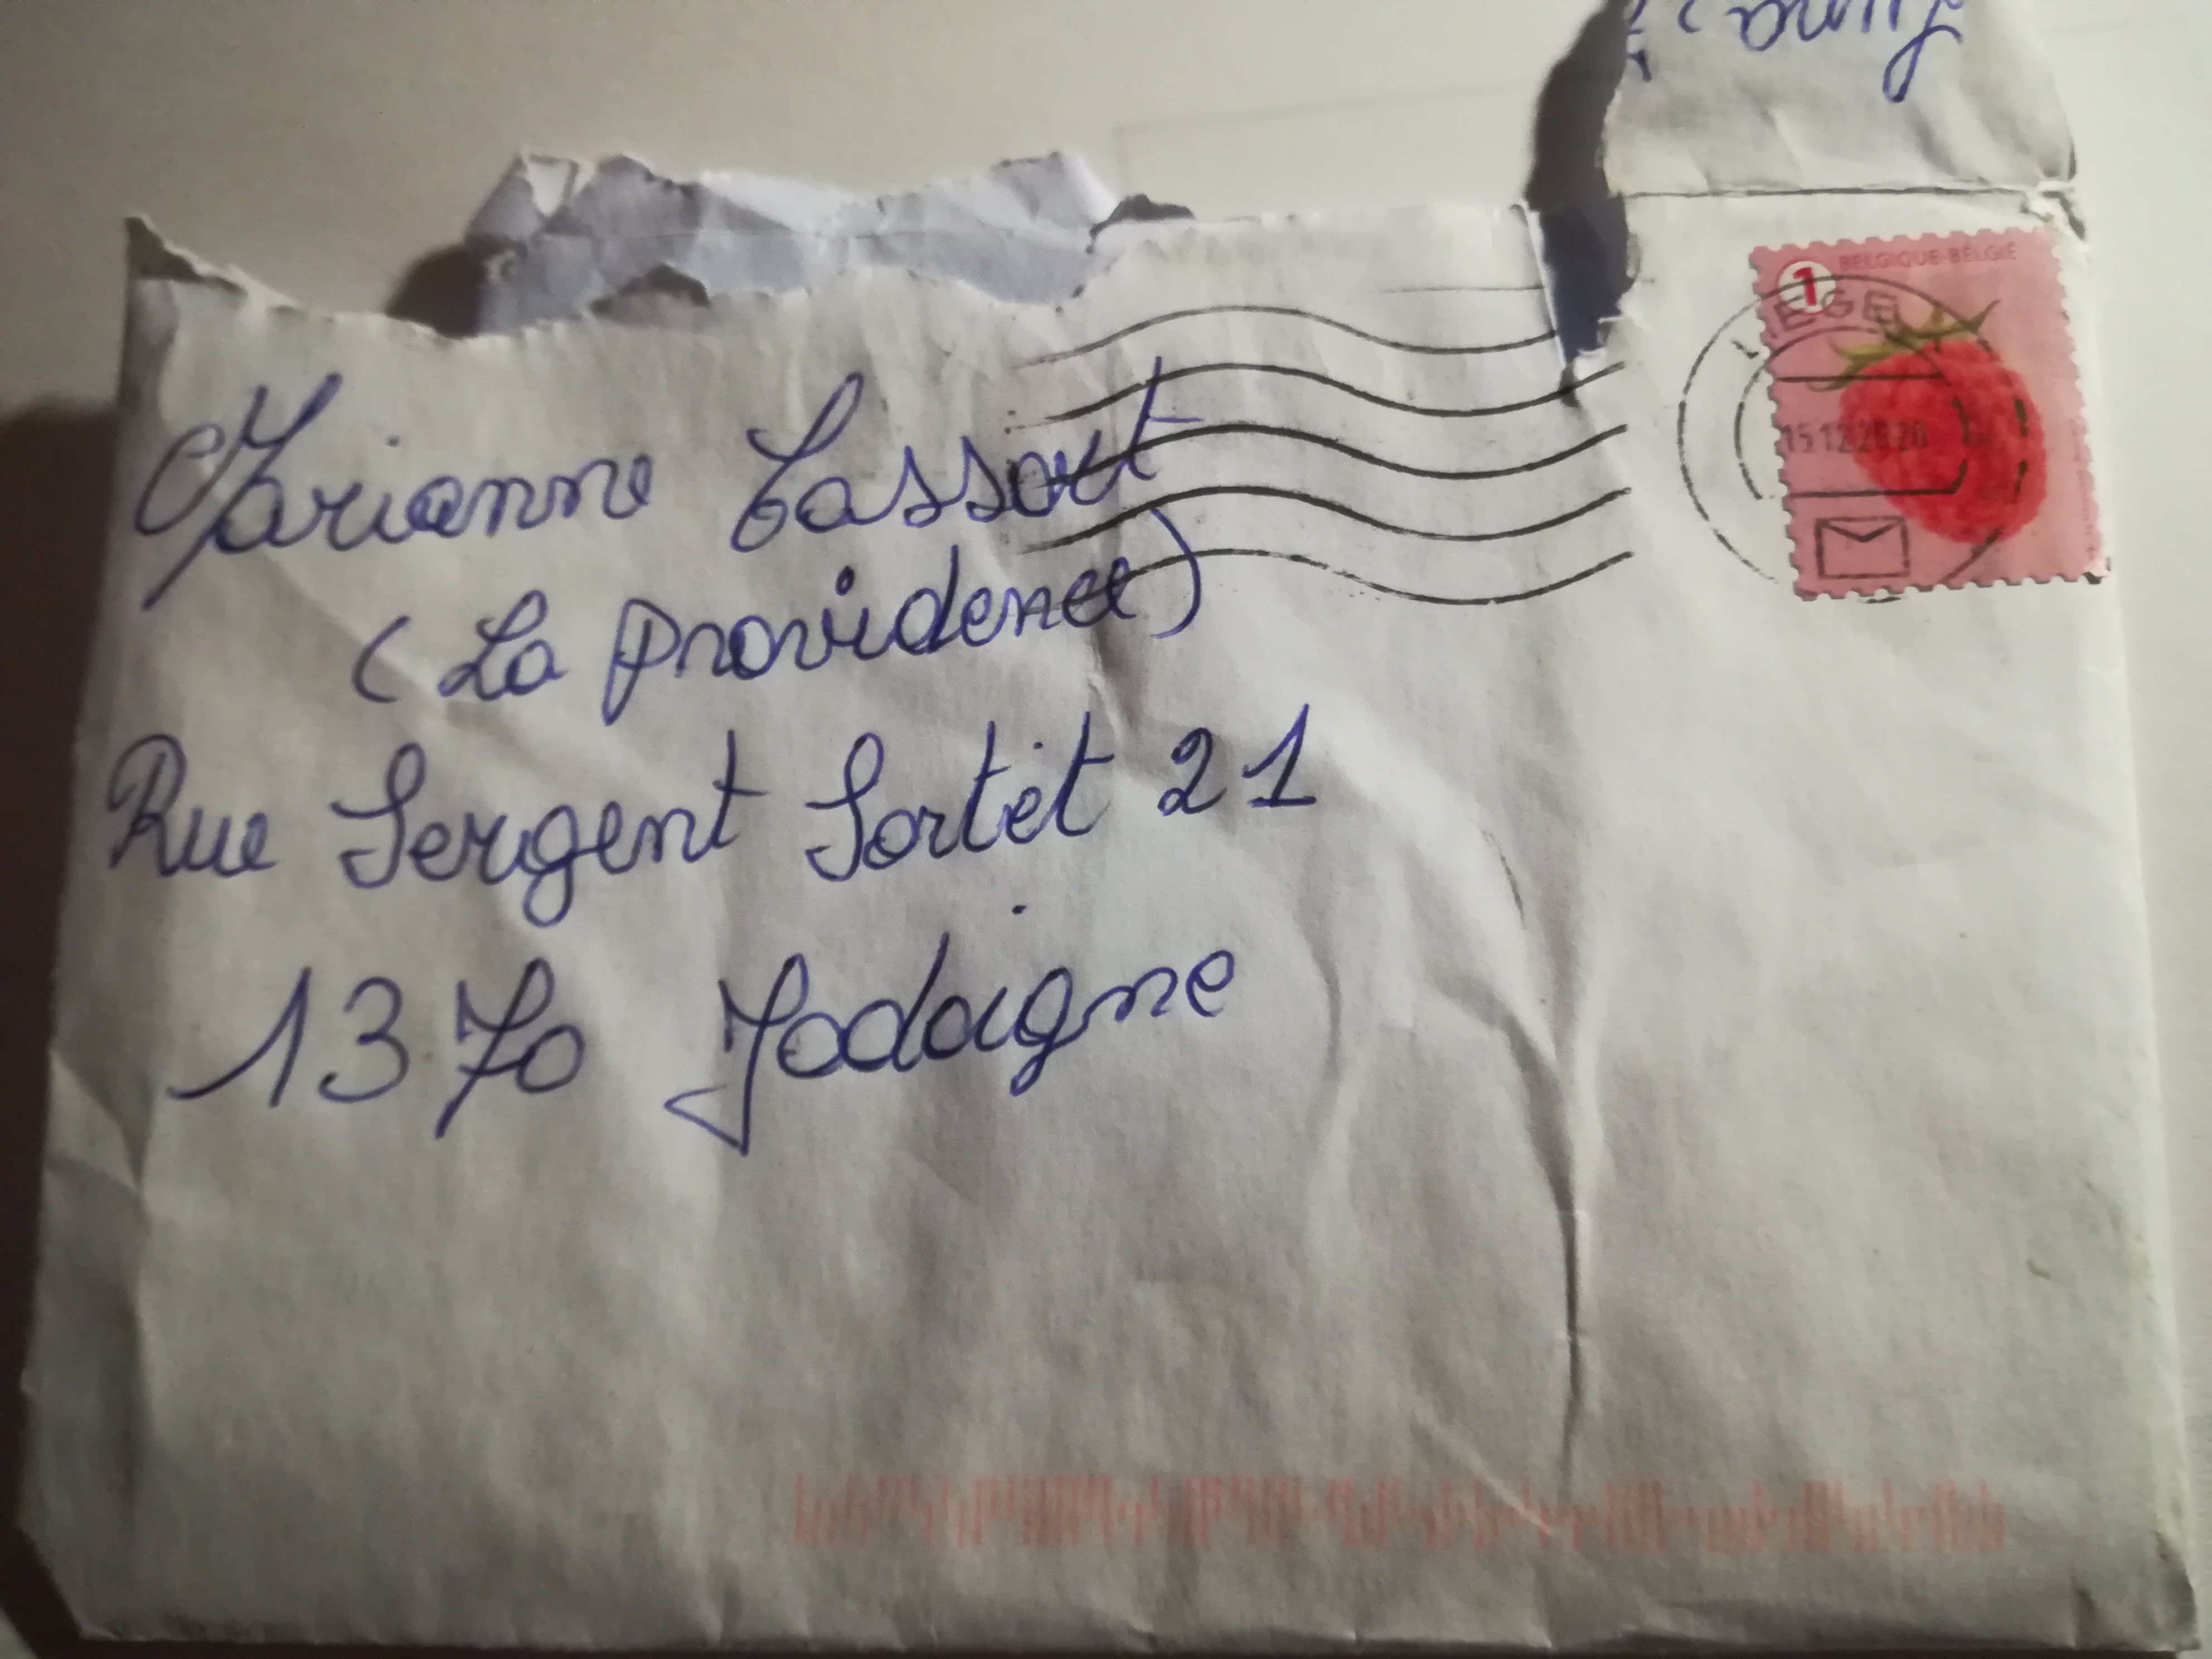 BELGIQUE-BELGIË
1
LIEGE
15 12 2020
Marianne Lassout
(La Providence)
Rue Sergent Sortet 21
1370 Jodoigne